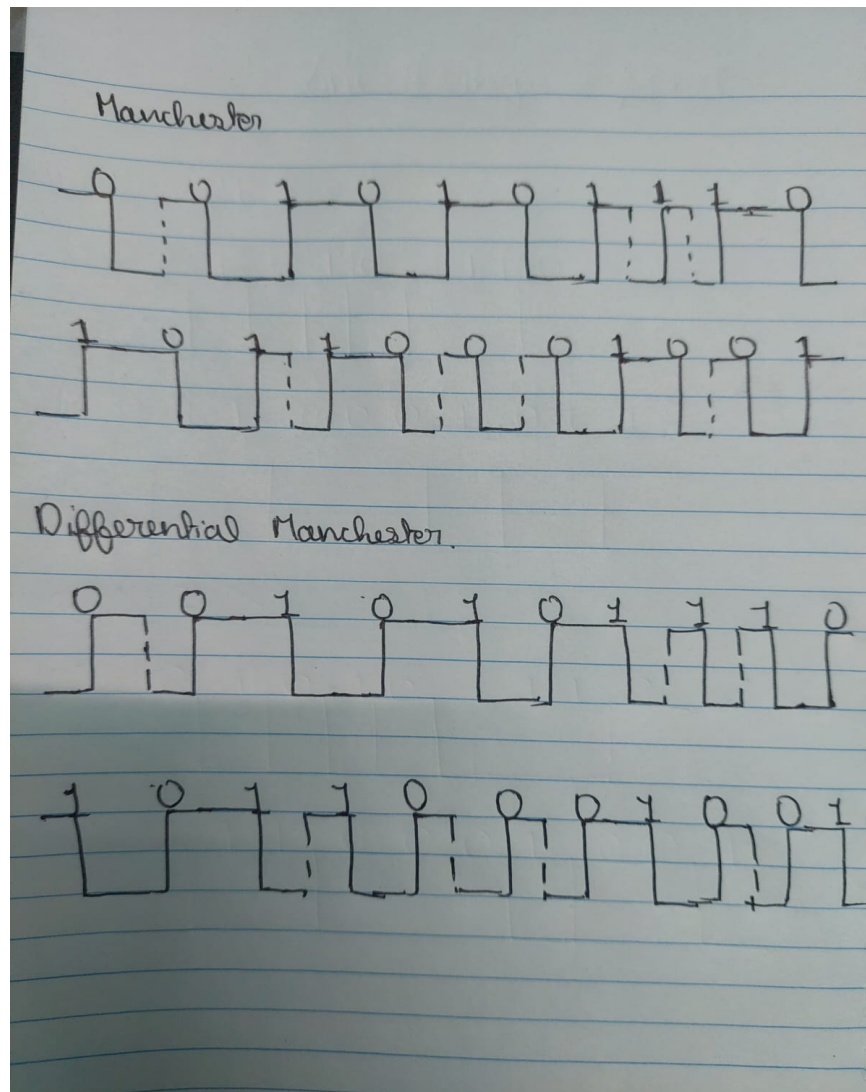 Manchester
0 0 1 0 1 0 1 1 1 0
1 0 1 1 0 0 0 1 0 0 1
Differential Manchester.
0 0 1 0 1 0 1 1 1 0
1 0 1 1 0 0 0 1 0 0 1